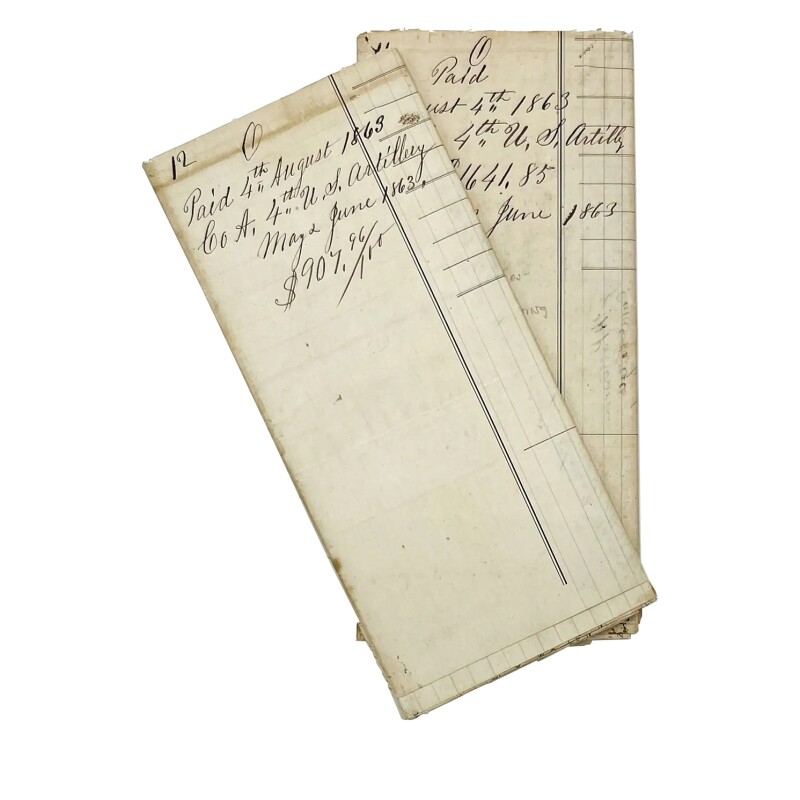 12
Paid 4th August 1863
Co A. 4th U. S. Artillery
May & June 1863.
$907.96/100
Paid
ust 4th 1863
4th U. S. Artilly
1641.85
June 1863